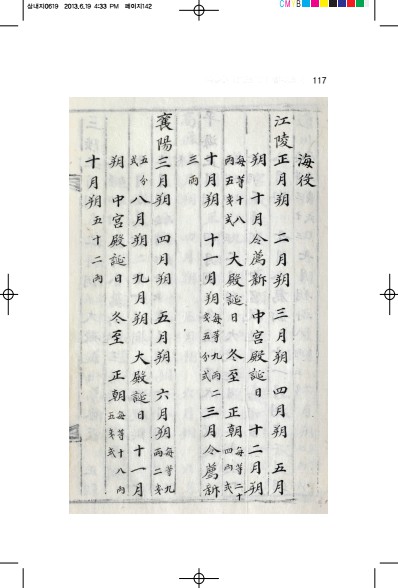 삼내지0619 2013.6.19 4:33 PM 페이지142
CMYB
117
海役
江陵正月朔 二月朔 三月朔 四月朔 五月
朔 十月令薦新 中宮殿誕日 十二月朔
每等十八兩五戔式 大殿誕日 冬至 正朝每等二十四兩式
十月朔 十一月朔每等九兩二戔五分式 三月令薦新
三兩
襄陽三月朔 四月朔 五月朔 六月朔每等九兩二戔
五分式 八月朔 九月朔 大殿誕日 十一月
朔 中宮殿誕日 冬至 正朝每等十八兩五戔式
十月朔五十二兩